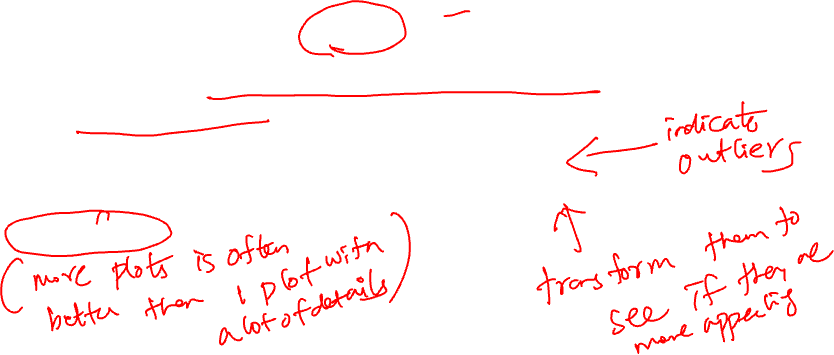 indicate
outliers
(more plots is often
better then 1 plot with
a lot of details)
transform them to
see if they are
more appealing